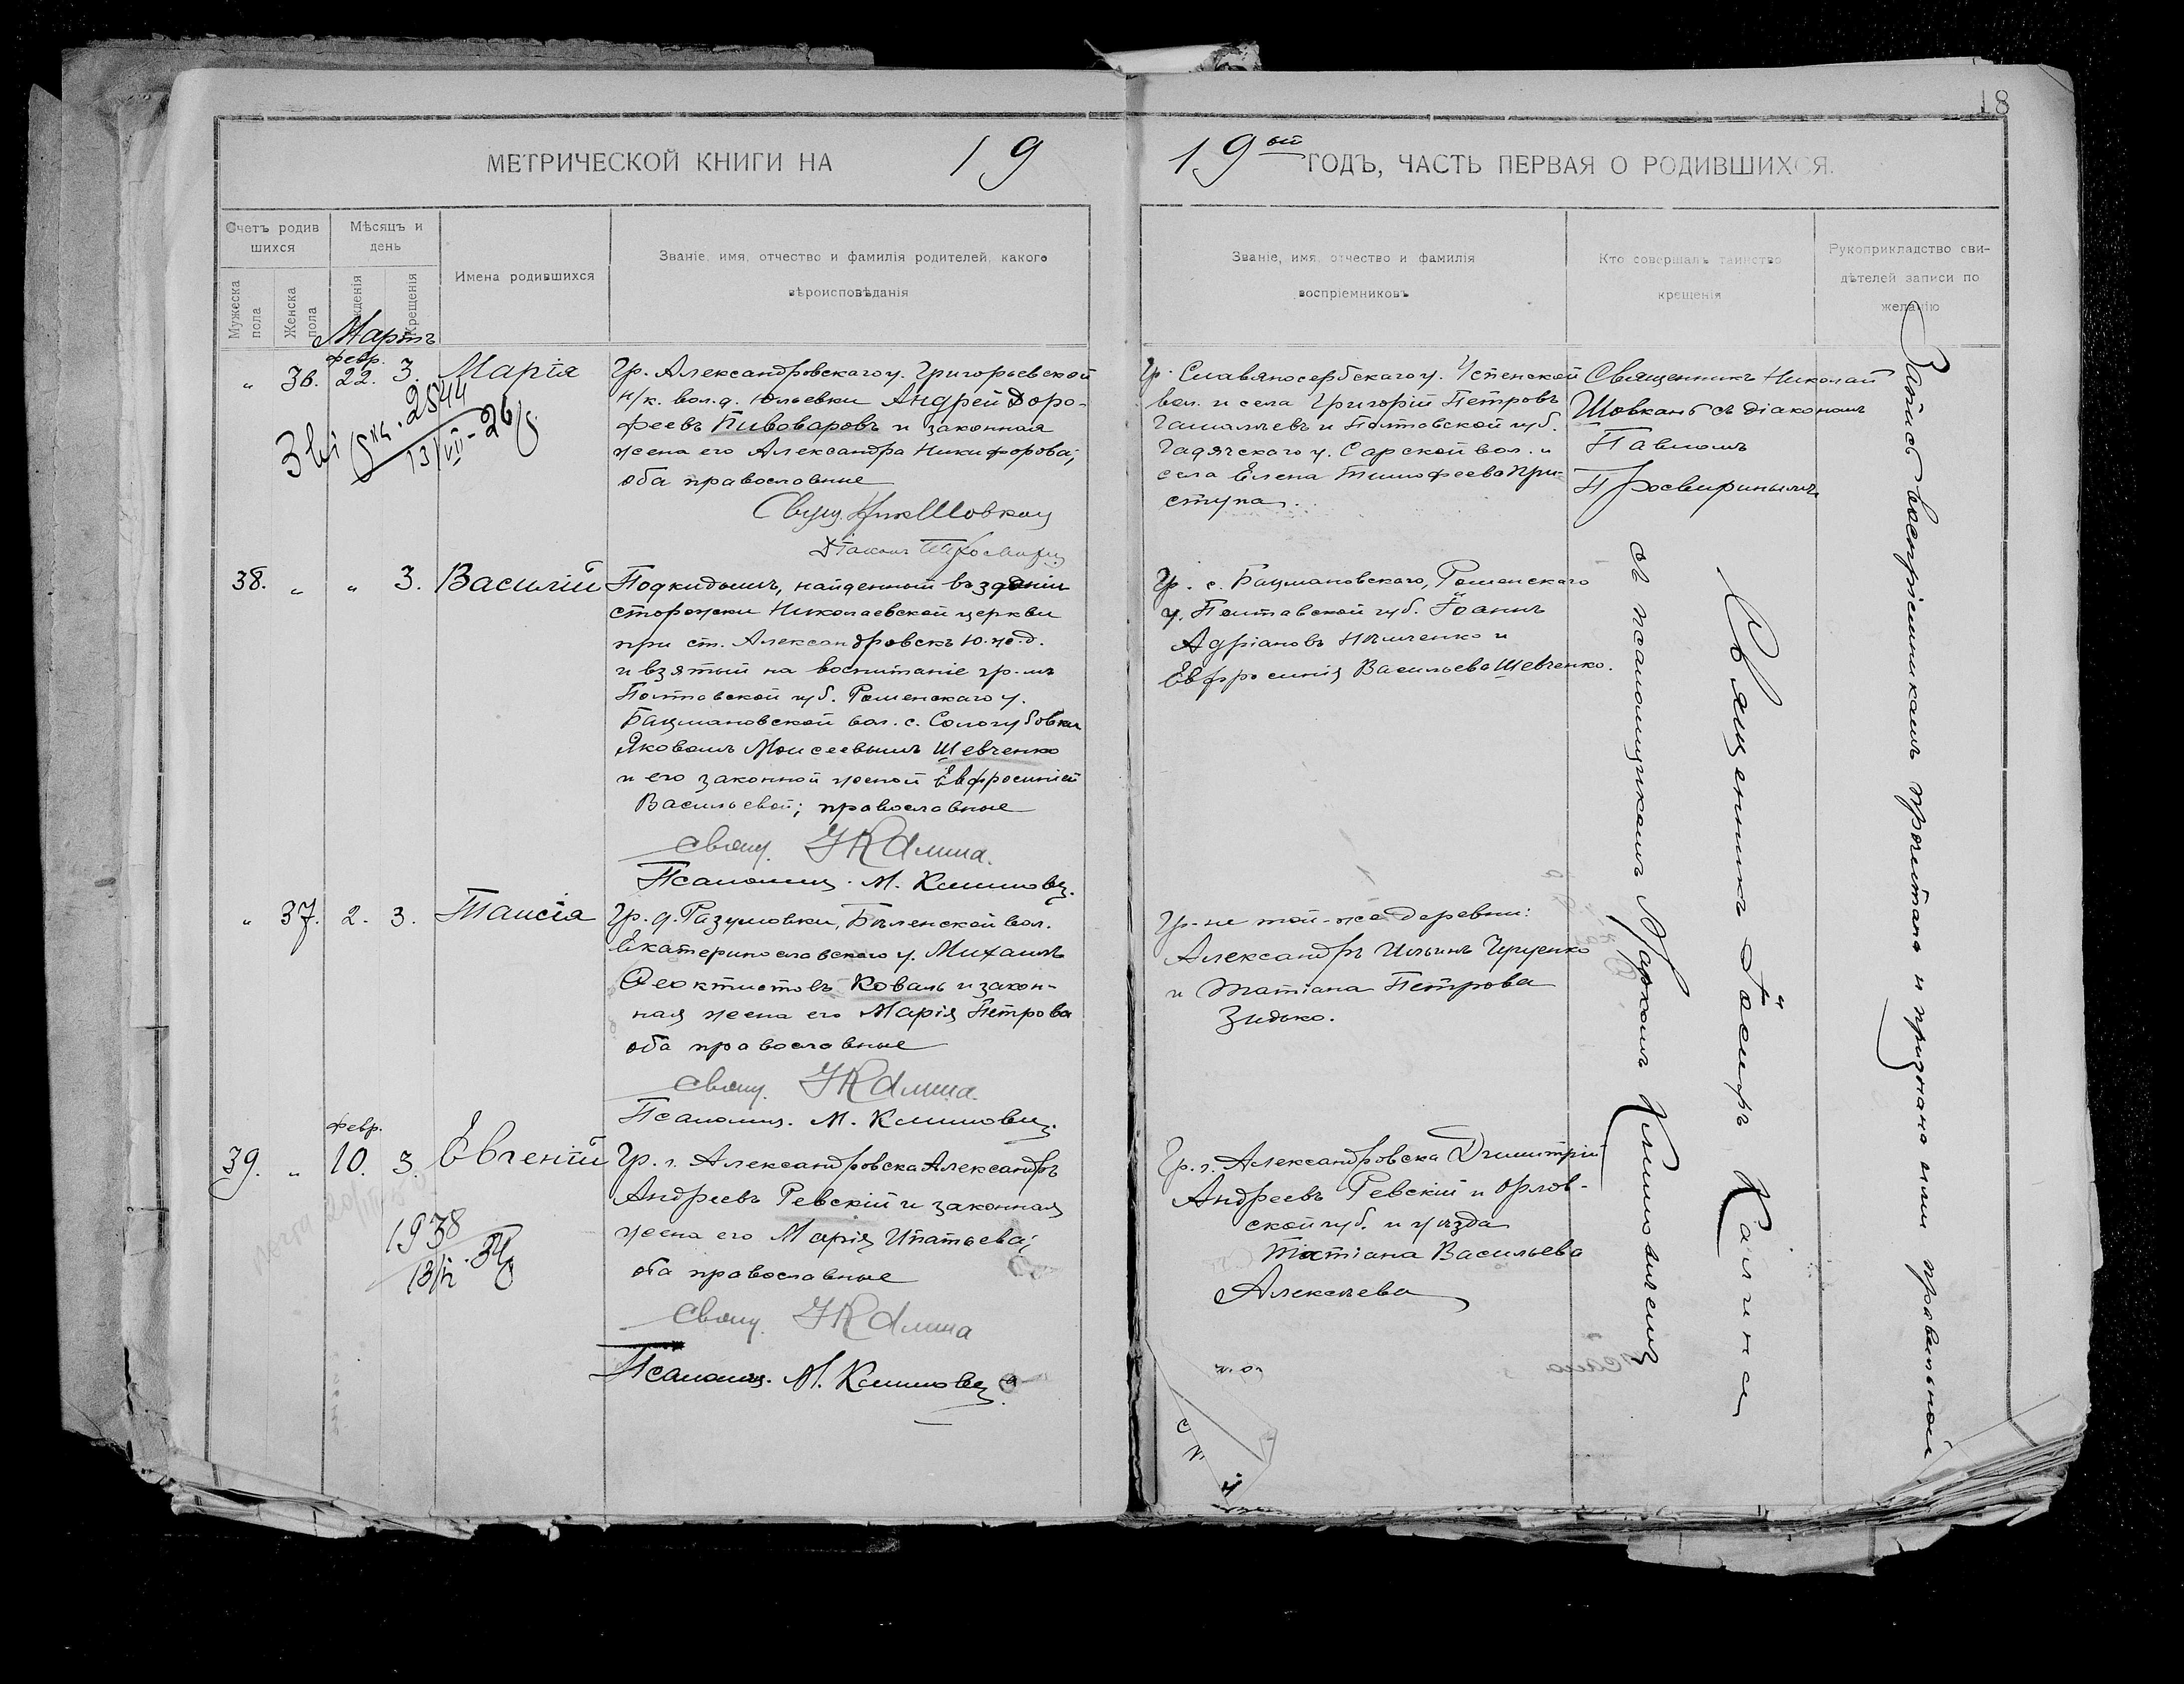 18
МЕТРИЧЕСКОЙ КНИГИ НА 19
19ый ГОДЪ, ЧАСТЬ ПЕРВАЯ О РОДИВШИХСЯ.
Счетъ родив
шихся
Мужеска
пола
Женска
пола
Мѣсяцъ и
день
рожденія
Крещенія
Имена родившихся
Званіе, имя, отчество и фамилія родителей, какого
вѣроисповѣданія
Званіе, имя, отчество и фамилія
воспріемниковъ
Кто совершалъ таинство
крещенія
Рукоприкладство сви-
дѣтелей записи по
желанію
Мартъ
„ 36. февр. 22. 3. Марія
2544
13/VII - 26
Гр. Александровскаго у. Григорьевской
н/к. вол. д. Юльевки Андрей Доро-
феевъ Пивоваровъ и законная
жена его Александра Никифорова;
оба православные
Свящ. Ник Шовкан
Діаконъ П Просвирин
Гр. Славяносербскаго у. Успенской
вол. и села Григорій Петровъ
и Полтавской губ.
Гадячскаго у. Сарской вол. и
села Елена Тимофеева При-
ступа.
Священникъ Николай
Шовканъ съ діакономъ
Павломъ
Просвиринымъ
38. „ „ 3. Василій
Подкидышъ, найденный въ зданіи
сторожки Николаевской церкви
при ст. Александровскъ Ю. ж. д.
и взятый на воспитаніе гр-мъ
Полтавской губ. Роменскаго у.
Бацмановской вол. с. Сологубовки
Яковомъ Моисеевымъ Шевченко
и его законной женой Евфросиніей
Васильевой; православные
Свящ. І Калина.
Псаломщ. М. Климовиц.
Гр. с. Бацмановского, Роменскаго
у. Полтавской губ. Іоаннъ
Адріановъ Ильченко и
Евфросинія Васильева Шевченко.
„ 37. 2. 3. Таисія
Гр. д. Разумовки, Бѣленской вол.
Екатеринославскаго у. Михаилъ
Феоктистовъ Коваль и закон-
ная жена его Марія Петрова
оба православные
Свящ. І Калина.
Псаломщ. М. Климовиц.
Гр-не той-же деревни:
Александръ Ильинъ
и Татіана Петрова
Зидько.
39. „ февр. 10. 3. Евгеній
1938
13/IV - 34
Гр. г. Александровска Александръ
Андреевъ Ревскій и законная
жена его Марія Ипатьева;
оба православные
Свящ. І Калина
Псаломщ. М. Климовиц
Гр. г. Александровска Димитрій
Андреевъ Ревскій и Орлов-
ской губ. и уѣзда
Татіана Васильева
Алексѣева
Священникъ Іосифъ Калина
съ псаломщикомъ Маркомъ Климовичемъ
Запись воспріемникамъ прочитана и признана ими правильной